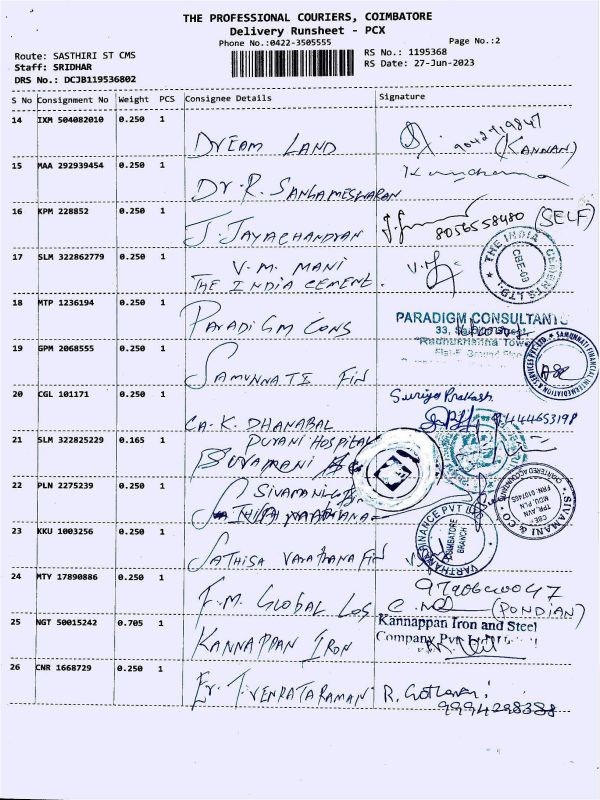 THE PROFESSIONAL COURIERS, COIMBATORE
Delivery Runsheet - PCX
Phone No.:0422-3505555
Page No.:2
Route: SASTHIRI ST CMS
RS No.: 1195368
Staff: SRIDHAR
RS Date: 27-Jun-2023
DRS No.: DCJB119536802
S No Consignment No Weight PCS Consignee Details Signature
14 IXM 504082010 0.250 1
DREAM LAND
(KANNAN)
15 MAA 292939454 0.250 1
Dr. R. SANGAMESWARAN
16 KPM 228852 0.250 1
J. JAYACHANDRAN
8056558480 (SELF)
17 SLM 322862779 0.250 1
V. M. MANI
THE INDIA CEMENT.
THE INDIA CEMENTS LTD.
CBE-09
18 MTP 1236194 0.250 1
PARADIGM CONS
PARADIGM CONSULTANTS
33,
Radhukrishna Tower
19 GPM 2068555 0.250 1
SAMUNNATI FIN
SAMUNNATI FINANCIAL INTERMEDIATION & SERVICES PVT. LTD.
20 CGL 101171 0.250 1
CA. K. DHANABAL
Suriya Prakash
9444653198
21 SLM 322825229 0.165 1
DURANI HOSPITAL
22 PLN 2275239 0.250 1
SIVAMANI & CO
CHARTERED ACCOUNTANTS
23 KKU 1003256 0.250 1
SATHISA VARATHANA FIN
VARTHANA FINANCE PVT LTD
COIMBATORE
BRANCH
24 MTY 17890886 0.250 1
F.M. GLOBAL LOG
(PONDIAN)
25 NGT 50015242 0.705 1
KANNAPPAN IRON
Kannappan Iron and Steel
Company Pvt
26 CNR 1668729 0.250 1
Er. T. VENKATARAMAN
9994298388